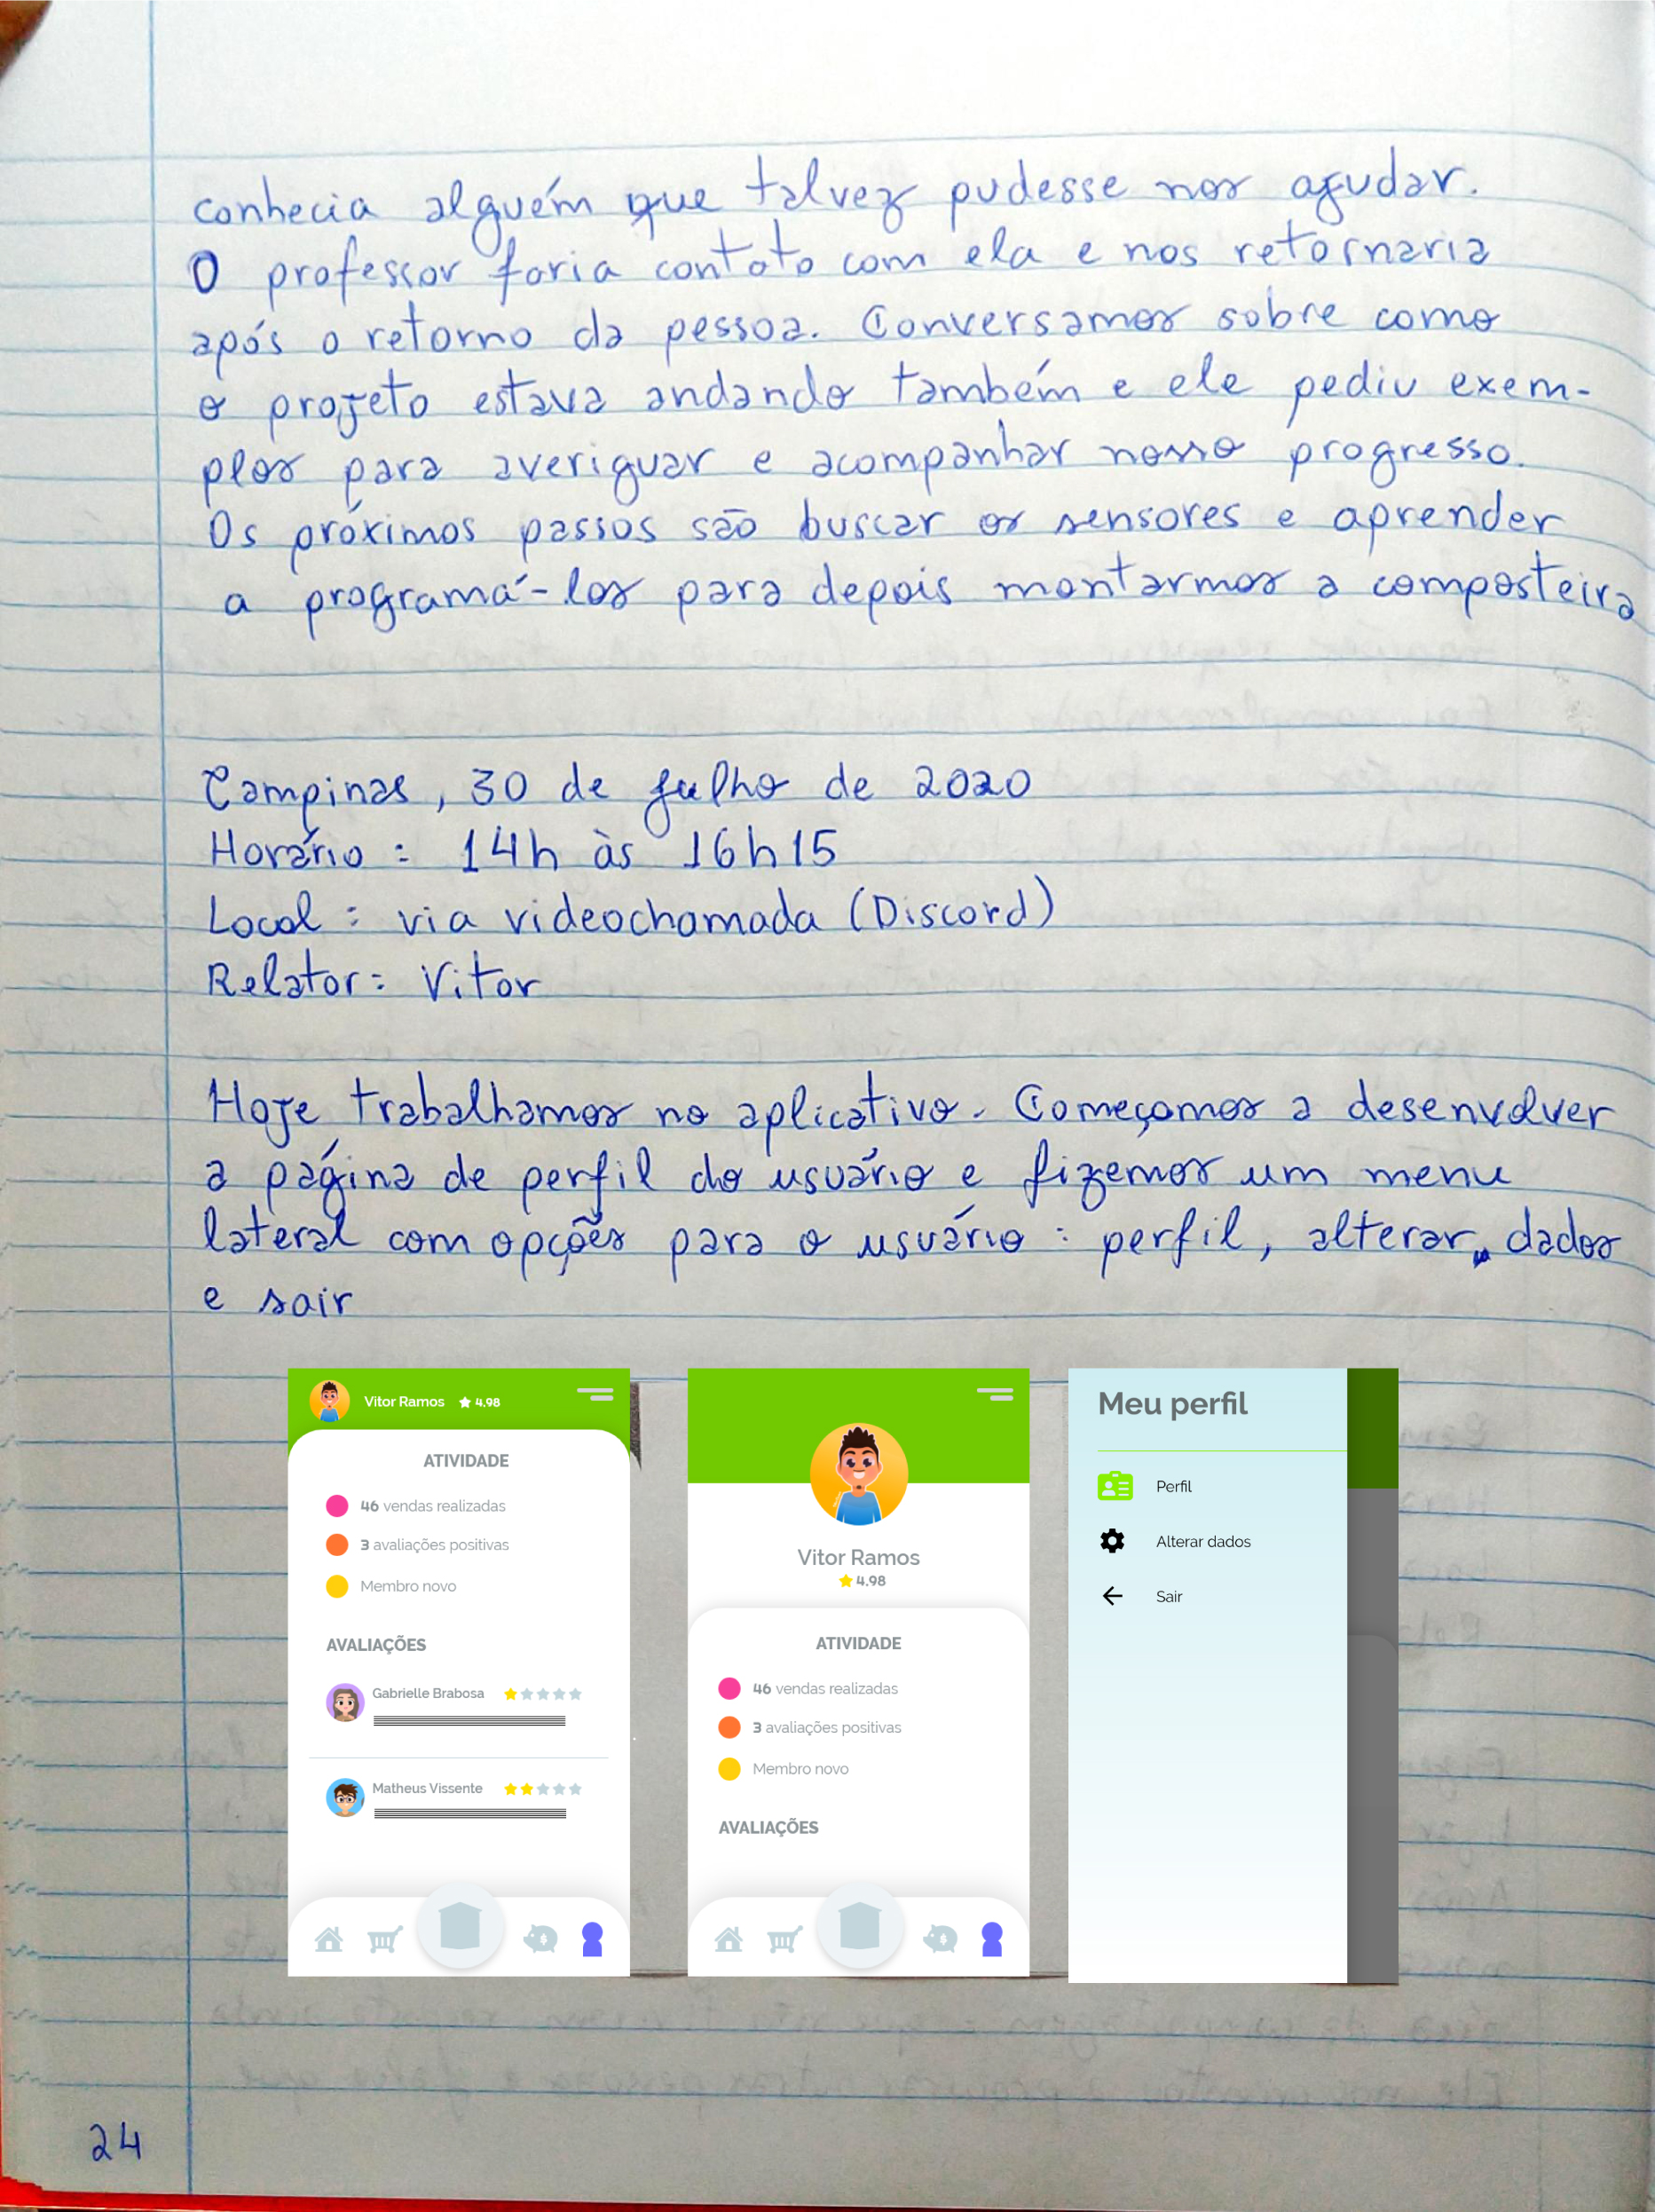 conhecia alguém que talvez pudesse nos ajudar.
O professor faria contato com ela e nos retornaria
após o retorno da pessoa. Conversamos sobre como
o projeto estava andando também e ele pediu exem-
plos para averiguar e acompanhar nosso progresso.
Os próximos passos são buscar os sensores e aprender
a programá-los para depois montarmos a composteira
Campinas, 30 de julho de 2020
Horário: 14h às 16h15
Local: via videochamada (Discord)
Relator: Vitor
Hoje trabalhamos no aplicativo. Começamos a desenvolver
a página de perfil do usuário e fizemos um menu
lateral com opções para o usuário: perfil, alterar dados
e sair
Vitor Ramos 4,98
ATIVIDADE
46 vendas realizadas
3 avaliações positivas
Membro novo
AVALIAÇÕES
Gabrielle Brabosa
Matheus Vissente
Vitor Ramos
4.98
ATIVIDADE
46 vendas realizadas
3 avaliações positivas
Membro novo
AVALIAÇÕES
Meu perfil
Perfil
Alterar dados
Sair
24